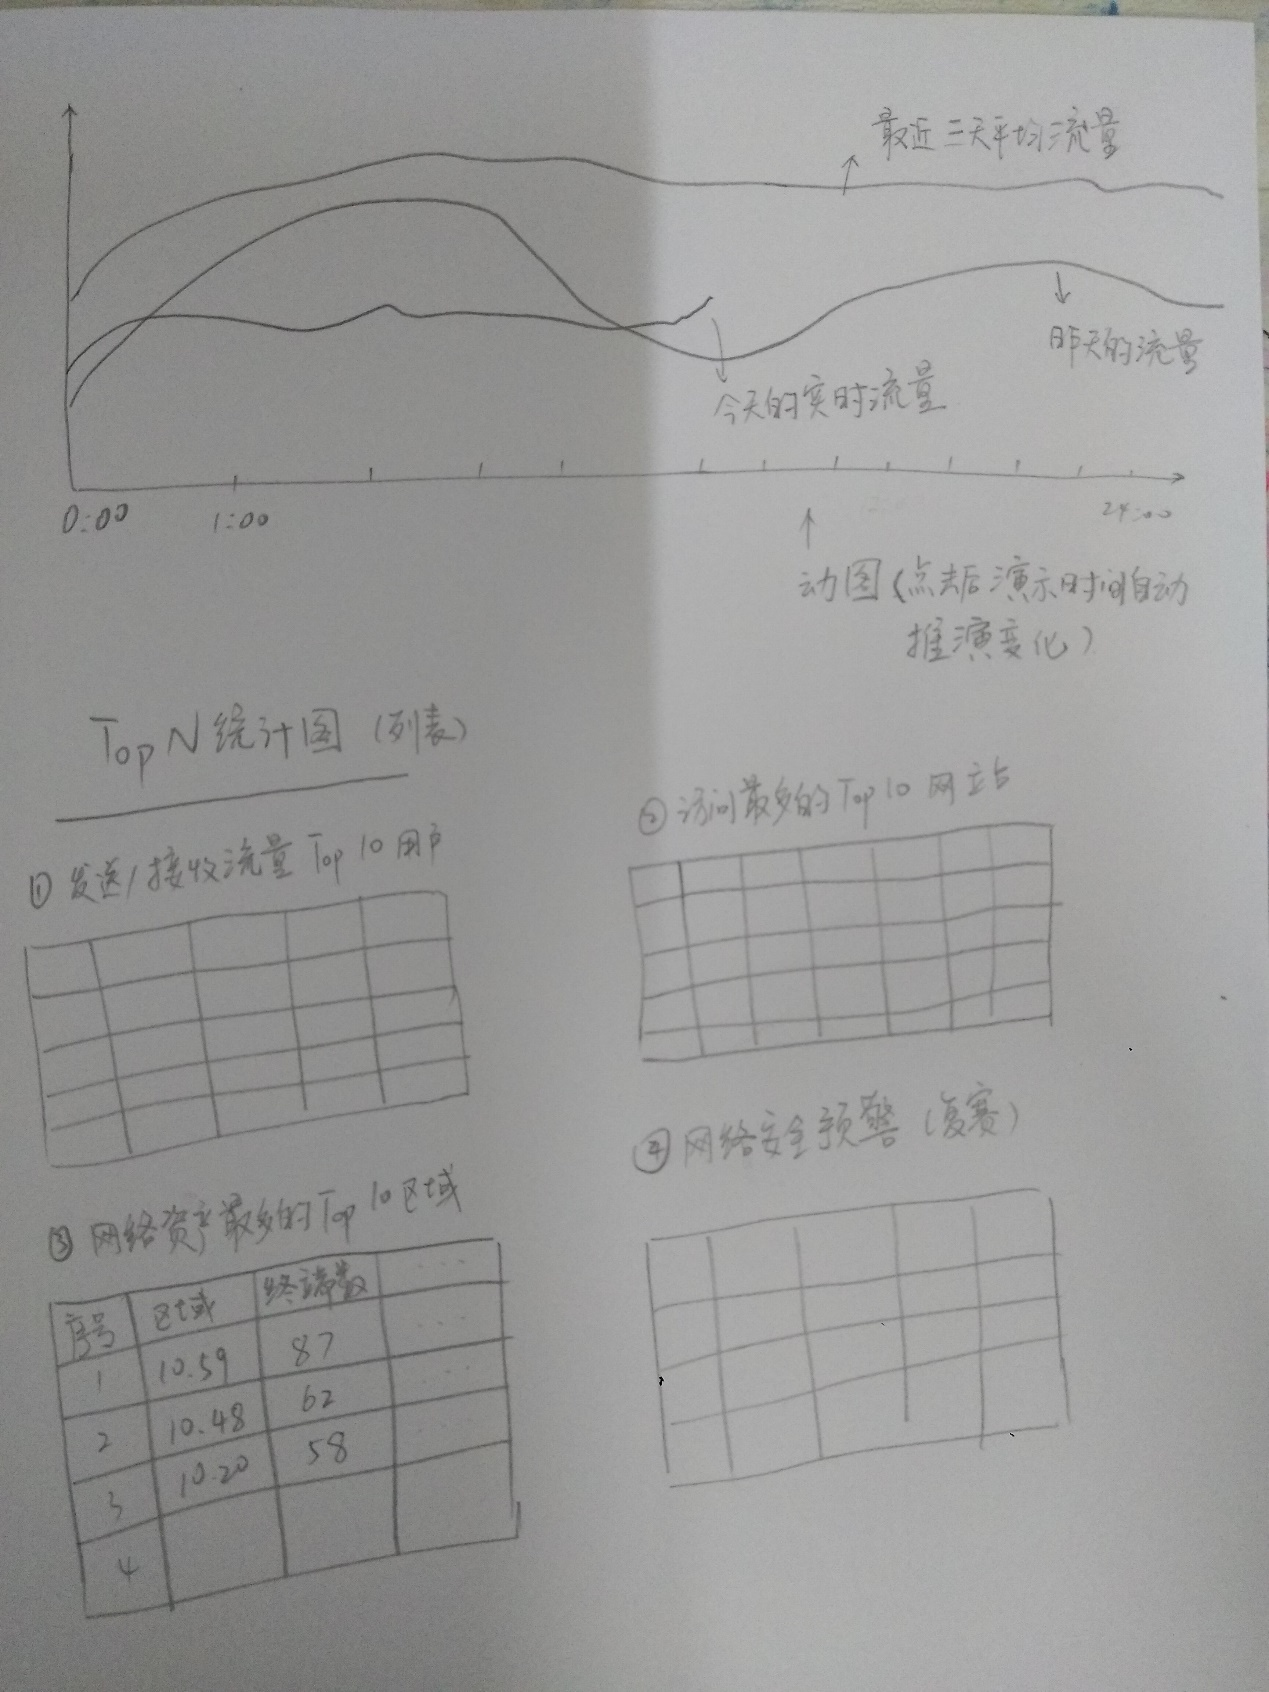 最近三天平均流量
昨天的流量
今天的实时流量
0:00 1:00 24:00
动图(点击后演示时间自动
推演变化)
Top N 统计图 (列表)
① 发送/接收流量 Top 10 用户
② 访问最多的 Top 10 网站
③ 网络资产最多的 Top 10 区域
序号 区域 终端数 ...
1 10.59 87 ...
2 10.48 62 ...
3 10.20 58 ...
4
④ 网络安全预警 (复赛)